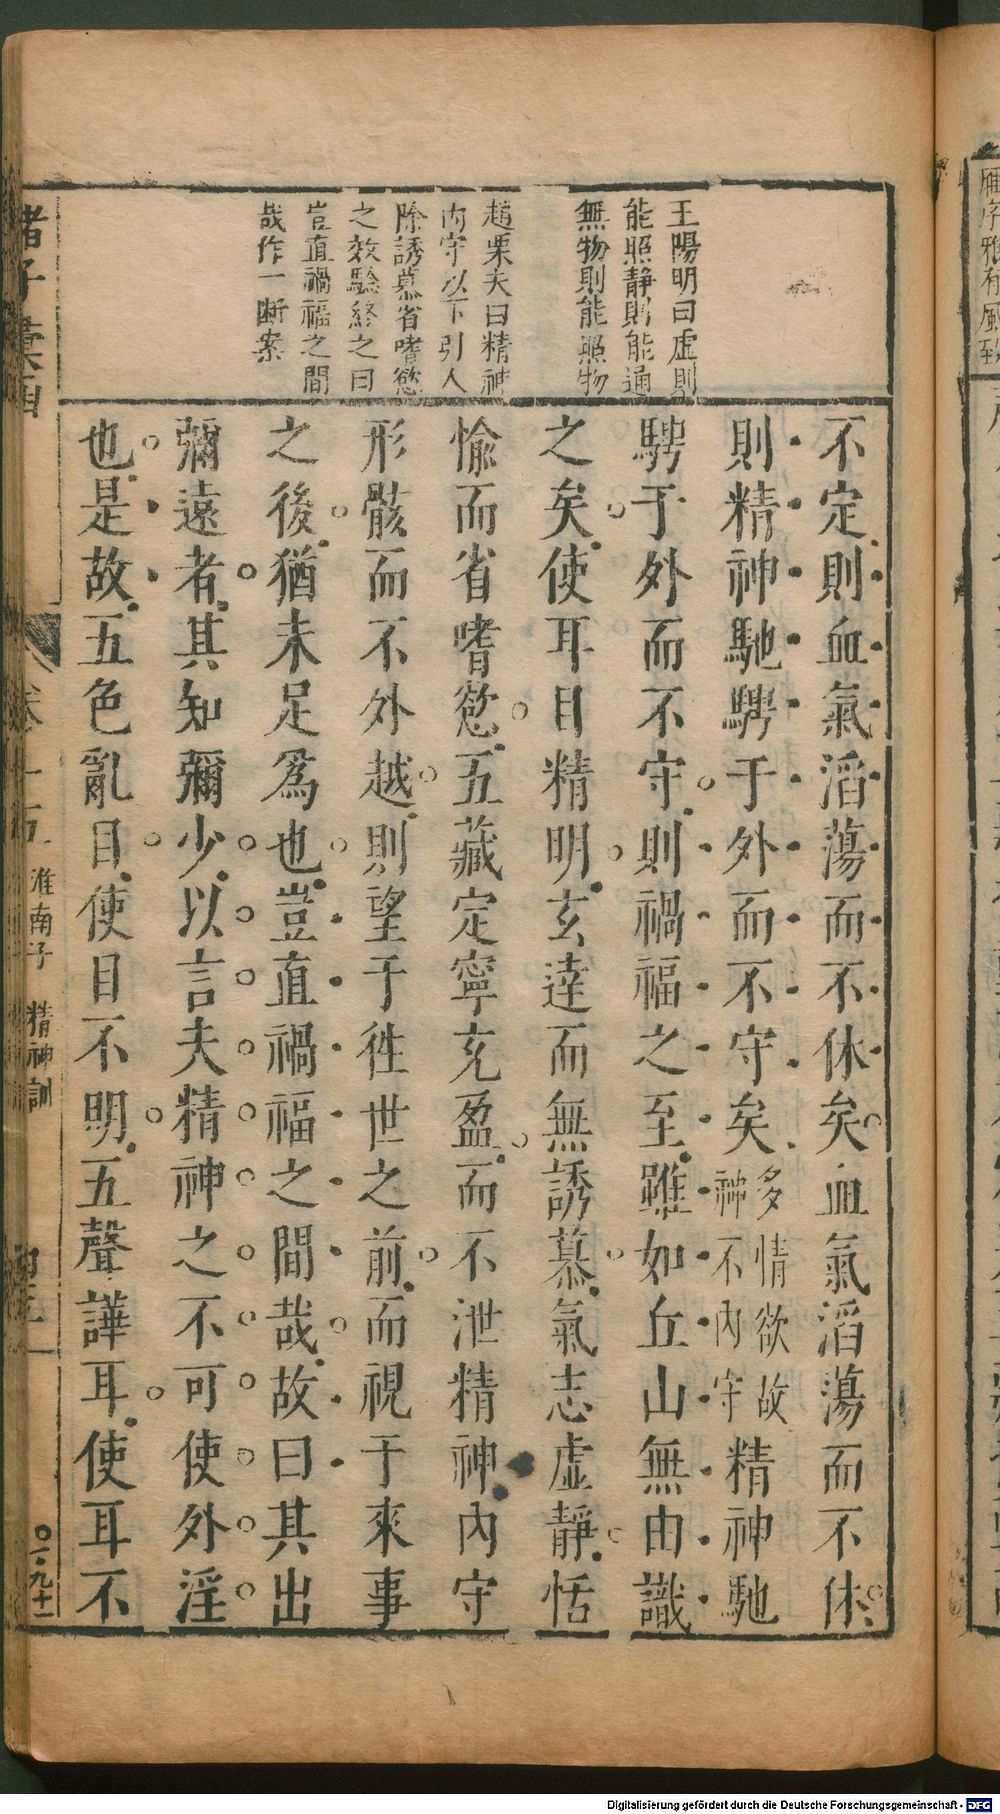 王陽明曰虛則
能照靜則能通
無物則能照物
趙栗夫曰精神
內守以下引人
除誘慕省嗜慾
之效驗終之曰
豈直禍福之間
哉作一斷案
不定則血氣滔蕩而不休矣血氣滔蕩而不休
則精神馳騁于外而不守矣多情欲故神不內守精神馳
騁于外而不守則禍福之至雖如丘山無由識
之矣使耳目精明玄達而無誘慕氣志虛靜恬
愉而省嗜慾五藏定寧充盈而不泄精神內守
形骸而不外越則望于徃世之前而視于來事
之後猶未足爲也豈直禍福之間哉故曰其出
彌遠者其知彌少以言夫精神之不可使外淫
也是故五色亂目使目不明五聲譁耳使耳不
諸子彙函
卷十五 淮南子 精神訓
雁字雅有風致
Digitalisierung gefördert durch die Deutsche Forschungsgemeinschaft - DFG